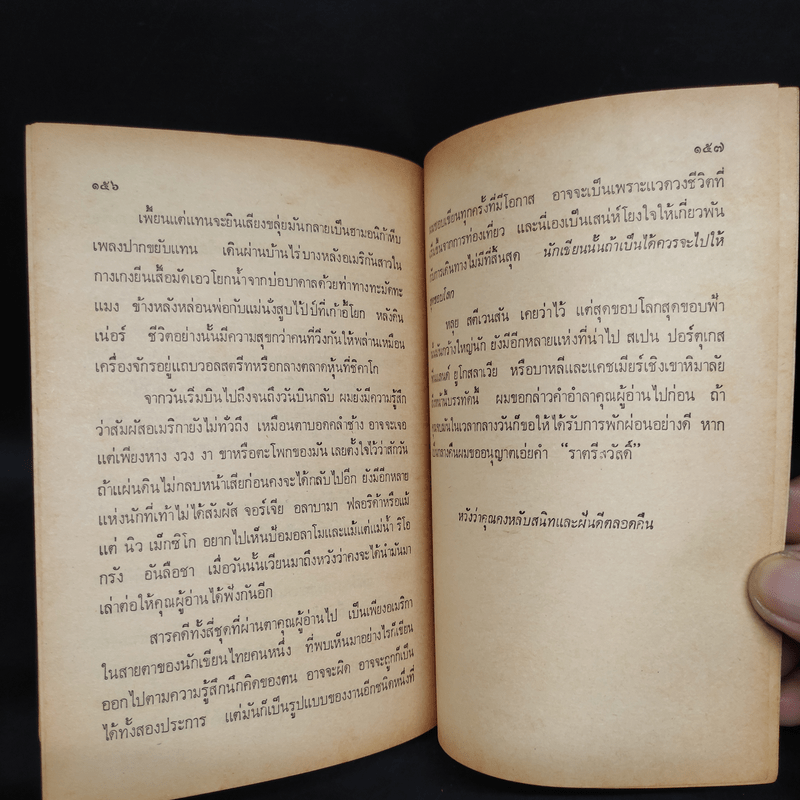 ๑๕๖
เพี้ยนแต่แทนจะยินเสียงขลุ่ยมันกลายเป็นฮามอนิก้าหีบ
เพลงปากขยับแทน เดินผ่านบ้านไร่บางหลังอเมริกันสาวใน
กางเกงยีนเสื้อมัดเอวโยกน้ำจากบ่อบาดาลด้วยท่าทางทะมัดทะ
แมง ข้างหลังหล่อนพ่อกับแม่นั่งสูบไป้ป์ที่เก้าอี้โยก หลังดิน
เน่อร์ ชีวิตอย่างนั้นมีความสุขกว่าคนที่วิ่งกันให้พล่านเหมือน
เครื่องจักรอยู่แถบวอลสตรีทหรือกลางตลาดหุ้นที่ชิคาโก
จากวันเริ่มบินไปถึงจนถึงวันบินกลับ ผมยังมีความรู้สึก
ว่าสัมผัสอเมริกายังไม่ทั่วถึง เหมือนตาบอดคลำช้าง อาจจะเจอ
แต่เพียงหาง งวง งา ขาหรือตะโพกของมัน เลยตั้งใจไว้ว่าสักวัน
ถ้าแผ่นดินไม่กลบหน้าเสียก่อนคงจะได้กลับไปอีก ยังมีอีกหลาย
แห่งนักที่เท้าไม่ได้สัมผัส จอร์เจีย อลาบามา ฟลอริด้าหรือแม้
แต่ นิว เม็กซิโก อยากไปเห็นป้อมอลาโมและแม้แต่แม่น้ำ ริโอ
กรัง อันลือชา เมื่อวันนั้นเวียนมาถึงหวังว่าคงจะได้นำมันมา
เล่าต่อให้คุณผู้อ่านได้ฟังกันอีก
สารคดีทั้งสี่ชุดที่ผ่านตาคุณผู้อ่านไป เป็นเพียงอเมริกา
ในสายตาของนักเขียนไทยคนหนึ่ง ที่พบเห็นมาอย่างไรก็เขียน
ออกไปตามความรู้สึกนึกคิดของตน อาจจะผิด อาจจะถูกก็เป็น
ได้ทั้งสองประการ แต่มันก็เป็นรูปแบบของงานอีกชนิดหนึ่งที่
๑๕๗
ชอบเขียนทุกครั้งที่มีโอกาส อาจจะเป็นเพราะแวดวงชีวิตที่
จากการท่องเที่ยว และนี่เองเป็นเสน่ห์โยงใจให้เกี่ยวพัน
การเดินทางไม่มีที่สิ้นสุด นักเขียนนั้นถ้าเป็นได้ควรจะไปให้
สุดขอบโลก
หลุย สตีเวนสัน เคยว่าไว้ แต่สุดขอบโลกสุดขอบฟ้า
กว้างใหญ่นัก ยังมีอีกหลายแห่งที่น่าไป สเปน ปอร์ตุเกส
ยูโกสลาเวีย หรือบาหลีและแคชเมียร์เชิงเขาหิมาลัย
บรรทัดนี้ ผมขอกล่าวคำอำลาคุณผู้อ่านไปก่อน ถ้า
ในเวลากลางวันก็ขอให้ได้รับการพักผ่อนอย่างดี หาก
กลางคืนผมขออนุญาตเอ่ยคำ “ราตรีสวัสดิ์”
หวังว่าคุณคงหลับสนิทและฝันดีตลอดคืน